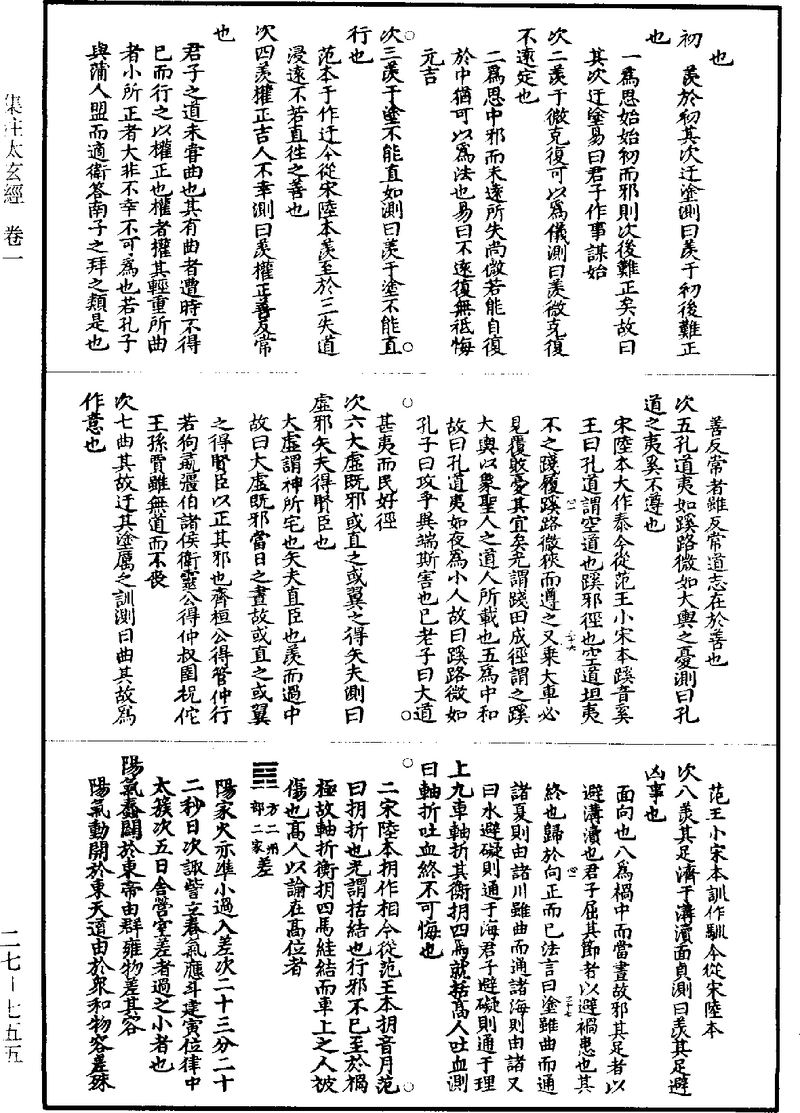 也
初一羨於初其次迂塗測曰羨于初後難正
也
一爲思始始初而邪則次後難正矣故曰
其次迂塗易曰君子作事謀始
次二羨于微克復可以爲儀測曰羨微克復
不遠定也
二爲思中邪而未遠所失尚微若能自復
於中猶可以爲法也易曰不遠復無祗悔
元吉
次三羨于塗不能直如測曰羨于塗不能直
行也
范本于作迂今從宋陸本羨至於三失道
浸遠不若直往之善也
次四羨權正吉人不幸測曰羨權正善反常
也
君子之道未甞曲也其有曲者遭時不得
已而行之以權正也權者權其輕重所曲
者小所正者大非不幸不可爲也若孔子
與蒲人盟而適衛答南子之拜之類是也
善反常者雖反常道志在於善也
次五孔道夷如蹊路微如大輿之憂測曰孔
道之夷奚不遵也
宋陸本大作泰今從范王小宋本蹊音奚
王曰孔道謂空道也蹊邪徑也空道坦夷
不之踐履蹊路微狹而遵之又乗大車必
見覆敗憂其宜矣光謂踐田成徑謂之蹊
大輿以象聖人之道人所載也五爲中和
故曰孔道夷如夜爲小人故曰蹊路微如
孔子曰攻乎異端斯害也已老子曰大道
甚夷而民好徑
次六大虛既邪或直之或翼之得矢夫測曰
虛邪矢夫得賢臣也
大虛謂神所宅也矢夫直臣也羨而過中
故曰大虛既邪當日之晝故或直之或翼
之得賢臣以正其邪也齊桓公得管仲行
若狗彘霸伯諸侯衛靈公得仲叔圉祝佗
王孫賈雖無道而不喪
次七曲其故迂其塗厲之訓測曰曲其故爲
作意也
范王小宋本訓作馴今從宋陸本
次八羨其足濟于溝瀆面貞測曰羨其足避
凶事也
面向也八爲禍中而當晝故邪其足者以
避溝瀆也君子屈其節者以避禍患也其
終也歸於向正而已法言曰塗雖曲而通
諸夏則由諸川雖曲而通諸海則由諸又
曰水避礙則通于海君子避礙則通于理
上九車軸折其衡抈四馬就括高人吐血測
曰軸折吐血終不可悔也
二宋陸本抈作相今從范王本抈音月范
曰抈折也光謂括結也行邪不已至於禍
極故軸折衡抈四馬絓結而車上之人被
傷也高人以諭在高位者
一方二州
一部二家
差
陽家火亦準小過入差次二十三分二十
二秒日次諏訾立春氣應斗建寅位律中
太蔟次五日舍營室差者過之小者也
陽氣蠢闢於東帝由群雍物差其容
陽氣動開於東天道由於衆和物容差殊
集注太玄經 卷一
二七－七五五